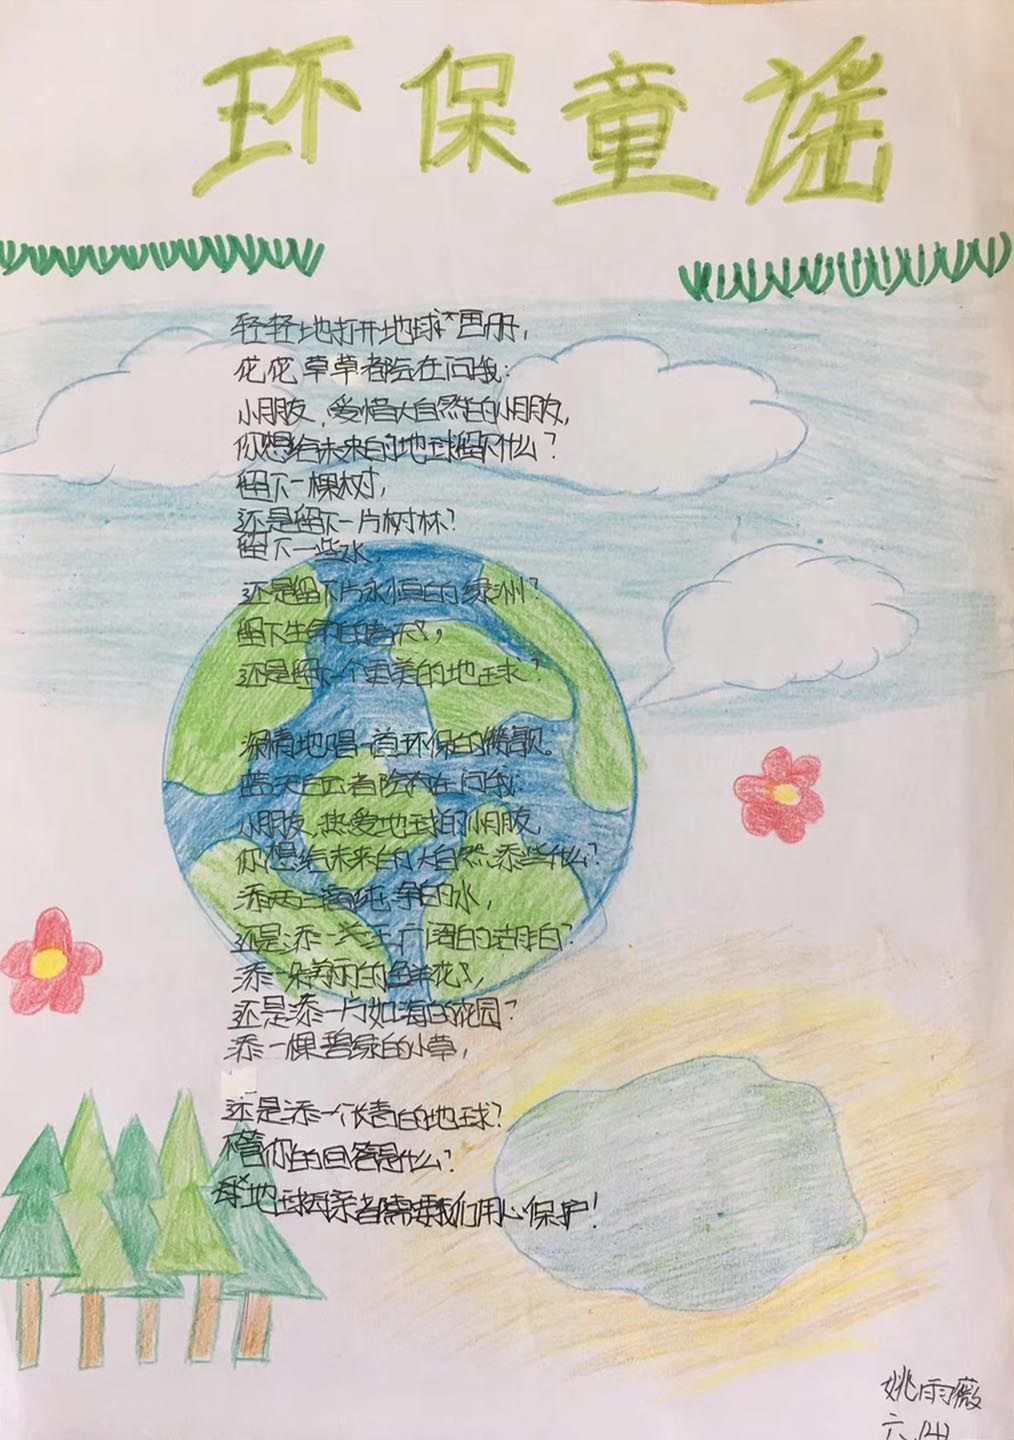 环保童谣
轻轻地打开地球画册，
花花草草都会在问我：
小朋友，爱惜大自然的小朋友，
你想给未来的地球留下什么？
留下一棵树，
还是留下一片树林？
留下一些水，
还是留下片永恒的绿洲？
留下生命的春天，
还是留下一个更美的地球？
深情地唱一首环保的赞歌。
蓝天白云都会在问我：
小朋友，热爱地球的小朋友，
你想给未来的大自然添些什么？
添两三滴纯净的水，
还是添一片广阔的
添一朵美丽的鲜花，
还是添一片如海的花园？
添一棵碧绿的小草，
还是添一个长青的地球？
不管你的回答是什么？
地球母亲都需要我们用心保护！
姚雨薇
六、(4)